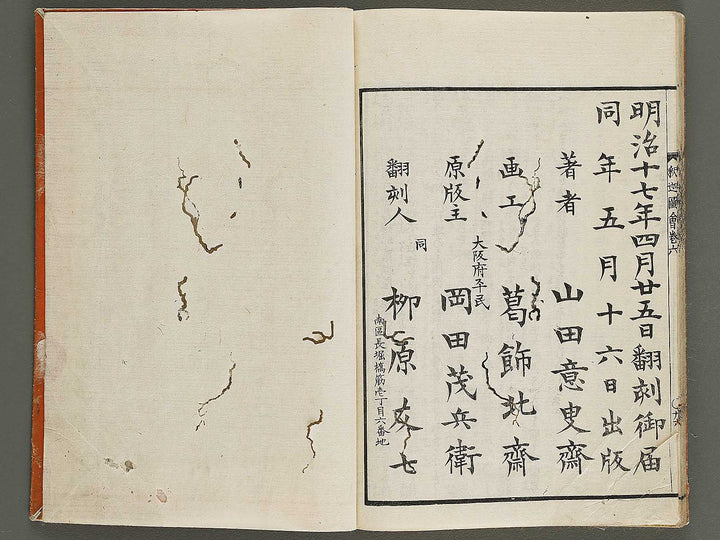 明治十七年四月廿五日翻刻御届
同年五月十六日出版
著者 山田意叟齋
画工 葛飾北齋
大阪府平民
原版主 岡田茂兵衛
同
翻刻人 柳原友七
南區長堀橋筋壱丁目六番地
釈迦圖會巻六